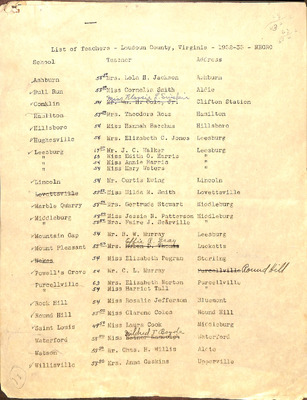 List of Teachers - Loudoun County, Virginia - 1932-33 - NEGRO
School Teacher Address
Ashburn Mrs. Lola H. Jackson Ashburn
Bull Run Miss Cornelia Smith Aldie
Conklin Clifton Station
Hamilton Mrs. Theodore Ross Hamilton
Hillsboro Miss Hannah Hillsboro
Hughesville Mrs. Elizabeth C. Jones Leesburg
Leesburg Mr. J. C. Walker Leesburg
Miss Edith O. Harris "
Miss Annie Harris "
Miss Mary Waters "
Lincoln Mr. Curtis Ewing Lincoln
Lovettsville Miss Hilda M. Smith Lovettsville
Marble Quarry Mrs. Gertrude Stewart Middleburg
Middleburg Miss Jessie B. Patterson Middleburg
Mrs. "
Mountain Gap Mr. B. W. Murray Leesburg
Effie J. Gray
Mount Pleasant Mrs. Lucketts
Nokes Miss Elizabeth Sterling
Powell's Grove Mr. C. L. Murray Purcellville Round Hill
Purcellville Mrs. Elizabeth Norton Purcellville
Miss Harriet Tull "
Rock Hill Miss Rosalie Jefferson Bluemont
Round Hill Miss Clarene Coles Round Hill
Saint Louis Miss Laura Cook Middleburg
Waterford Miss Waterford
Watson Mr. Chas. H. Willis Aldie
Willisville Mrs. Anna Gaskins Upperville